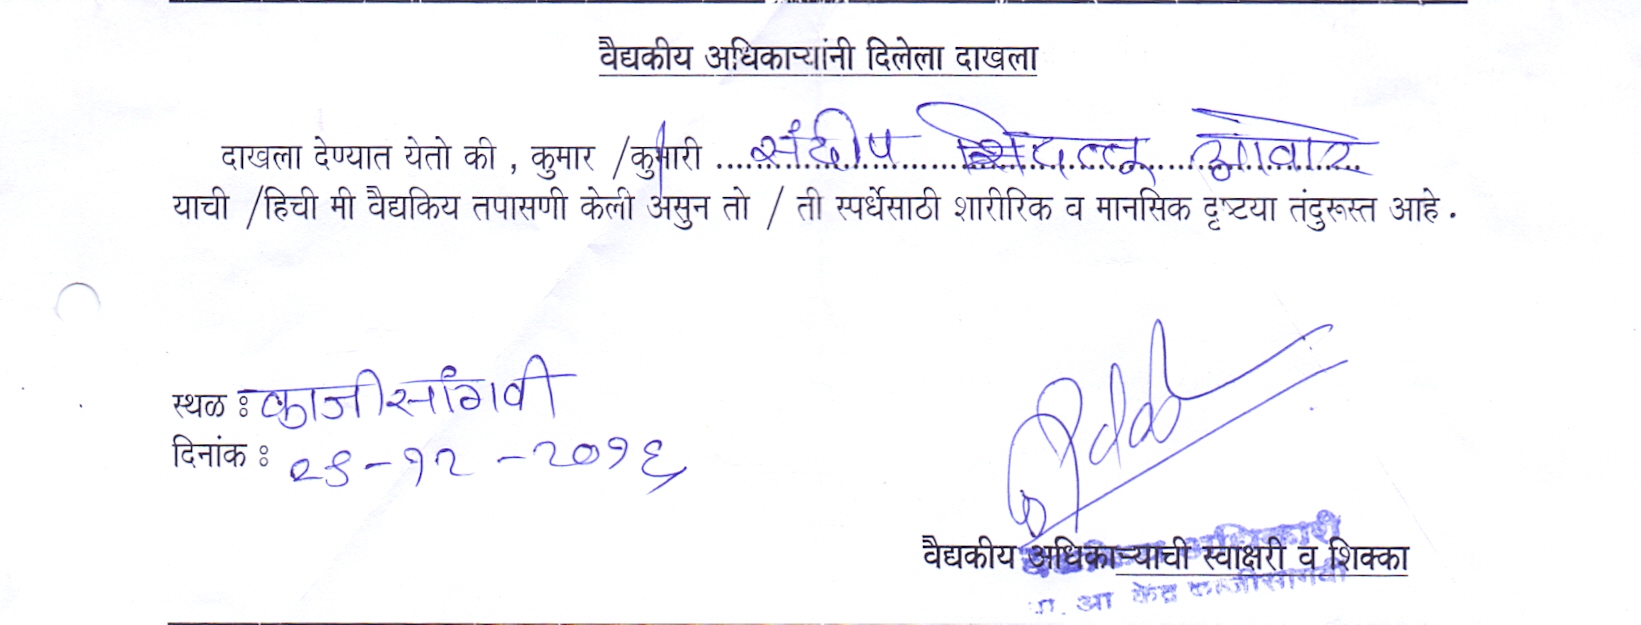 वैद्यकीय अधिकाऱ्यांनी दिलेला दाखला
दाखला देण्यात येतो की , कुमार /कुमारी संदीप
याची /हिची मी वैद्यकिय तपासणी केली असुन तो / ती स्पर्धेसाठी शारीरिक व मानसिक दृष्टया तंदुरूस्त आहे .
स्थळ : काजीसांगवी
दिनांक : २६-१२-२०१६
वैद्यकीय अधिकाऱ्याची स्वाक्षरी व शिक्का
वैद्यकीय अधिकारी
प्रा. आ केंद्र काजीसांगवी